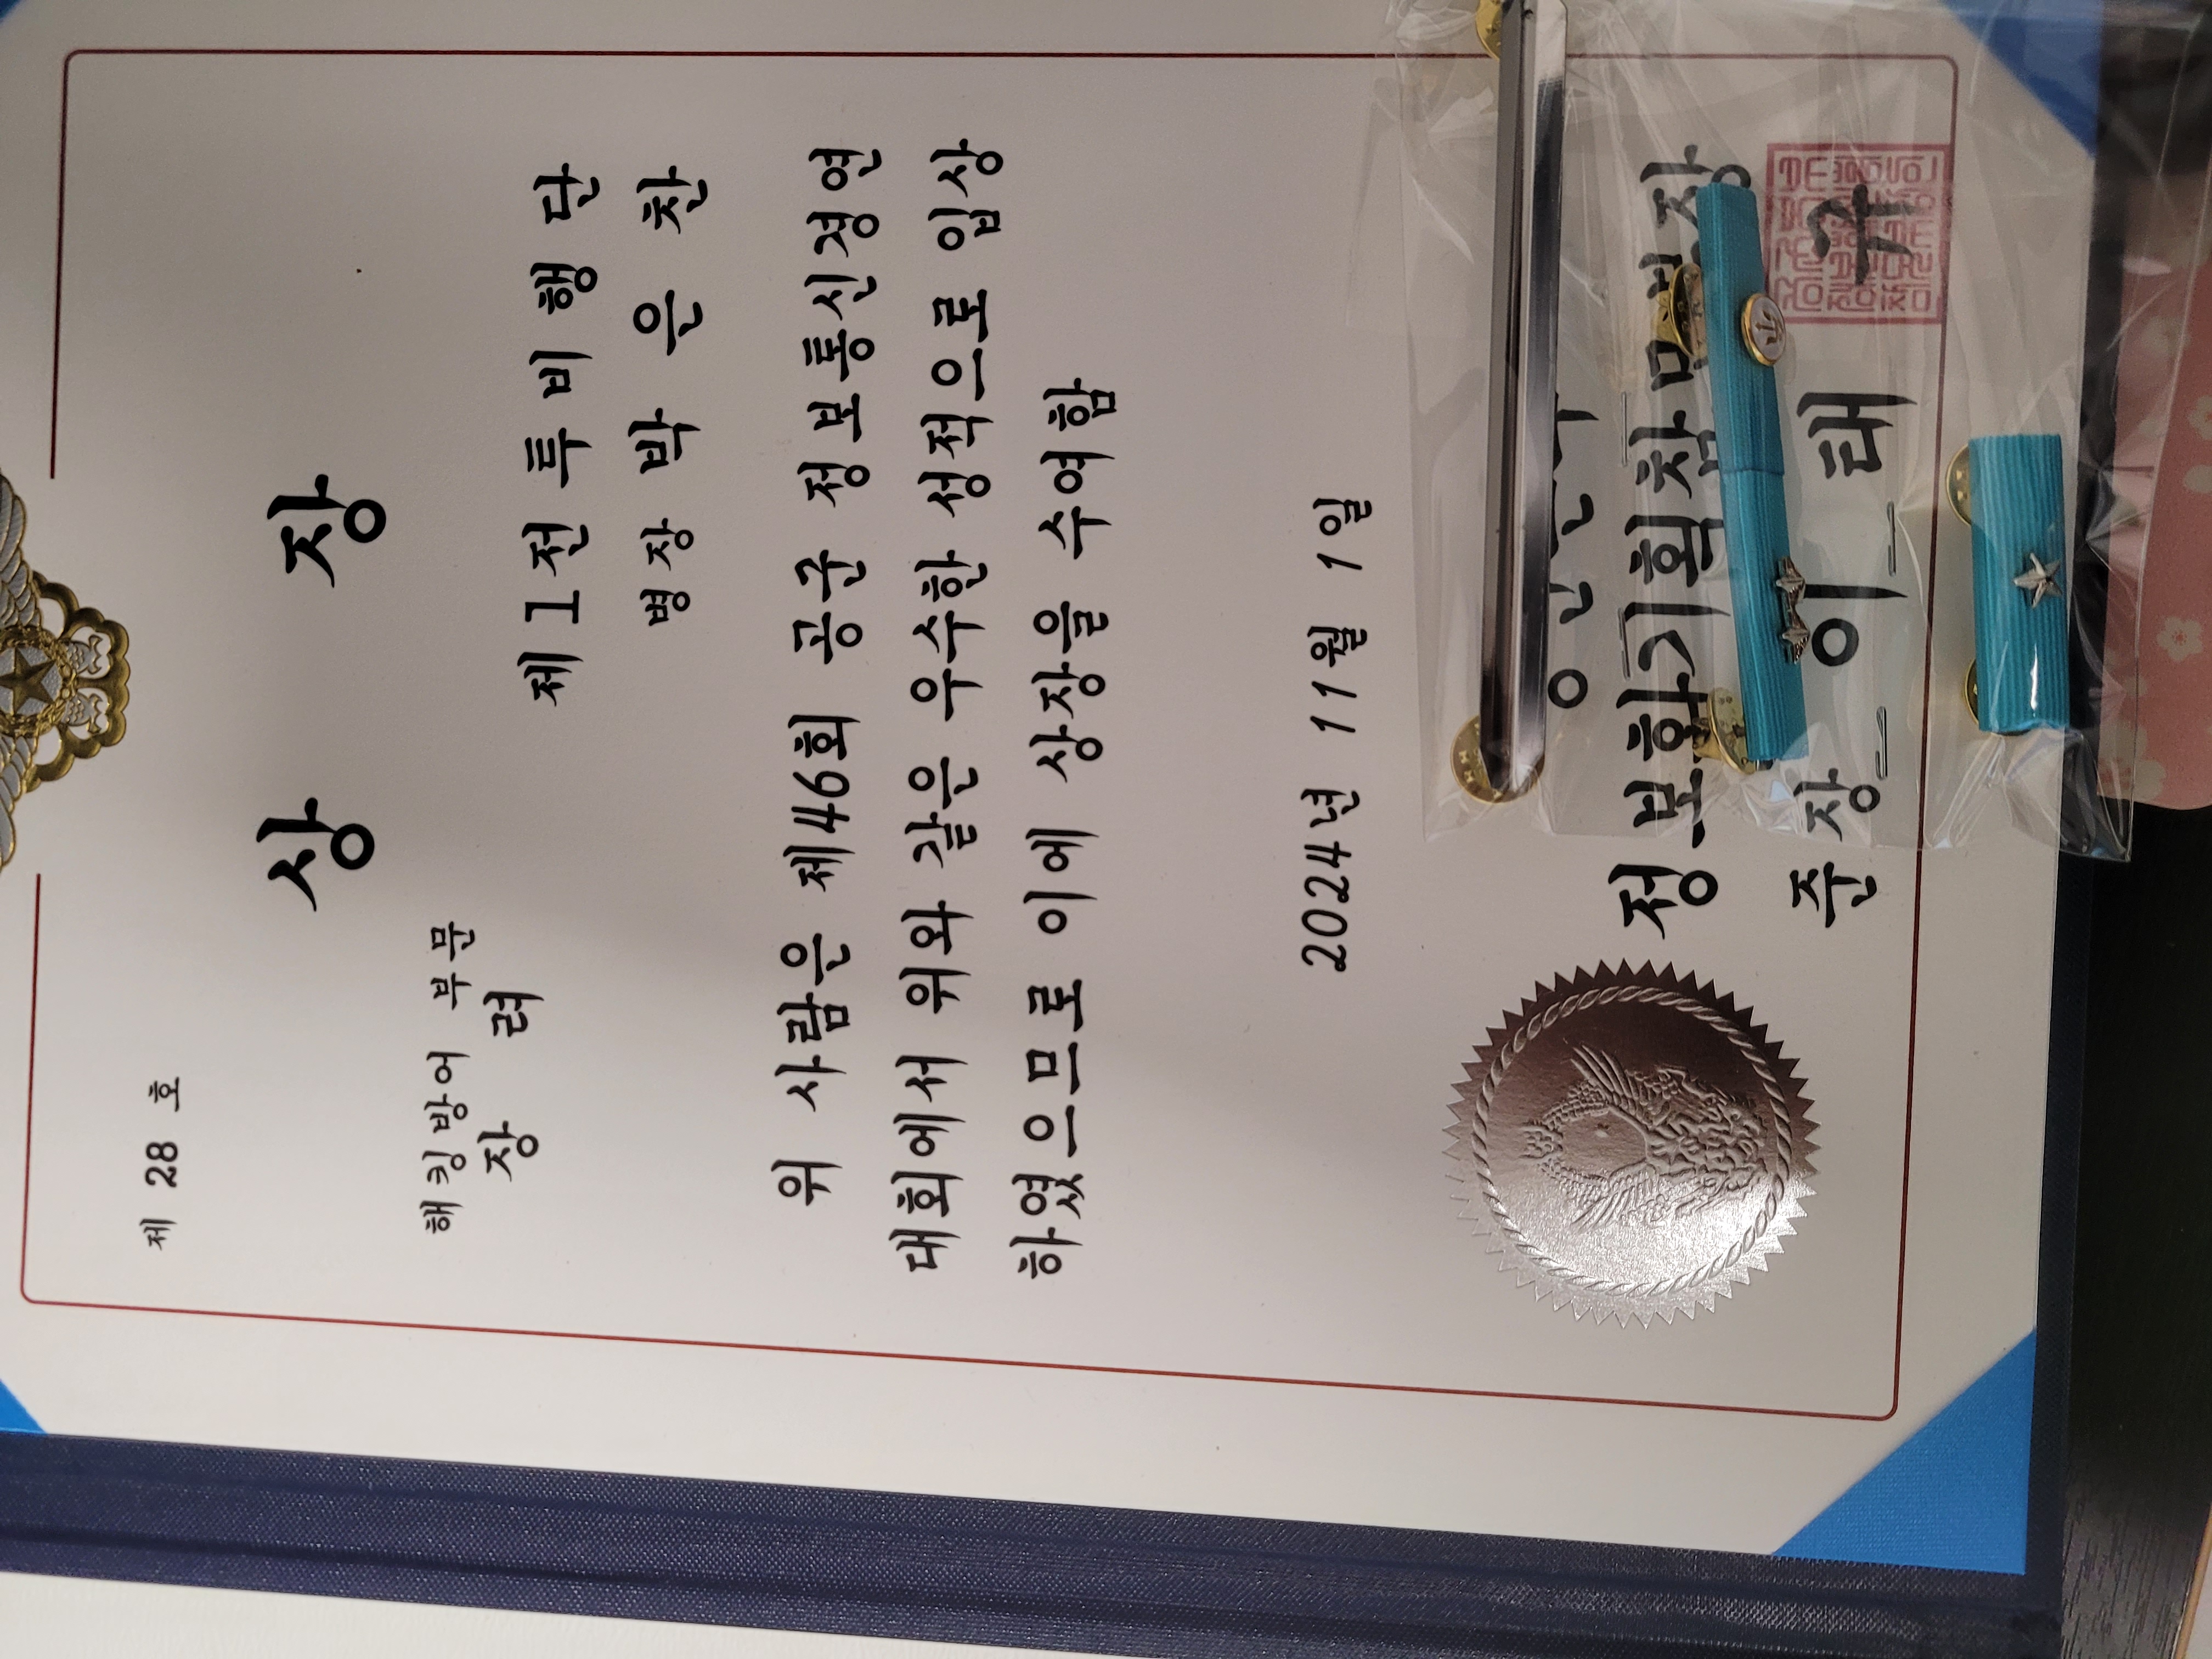 제 28 호
상 장
해킹방어 부문
장 려
제1전투비행단
병장 박은찬
위 사람은 제46회 공군 정보통신경연
대회에서 위와 같은 우수한 성적으로 입상
하였으므로 이에 상장을 수여함
2024년 11월 1일
정보화기획참모부장
준장 이태규